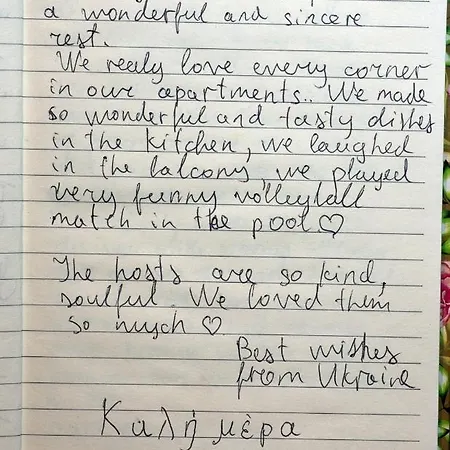 a wonderful and sincere
rest.
We realy love every corner
in our apartments.. We made
so wonderful and tasty dishes
in the kitchen, we laughed
in the balcony, we played
very funny volleyball
match in the pool ♡
The hosts are so kind,
soulful. We loved them
so much ♡
Best wishes
from Ukraine
Καλή μέρα